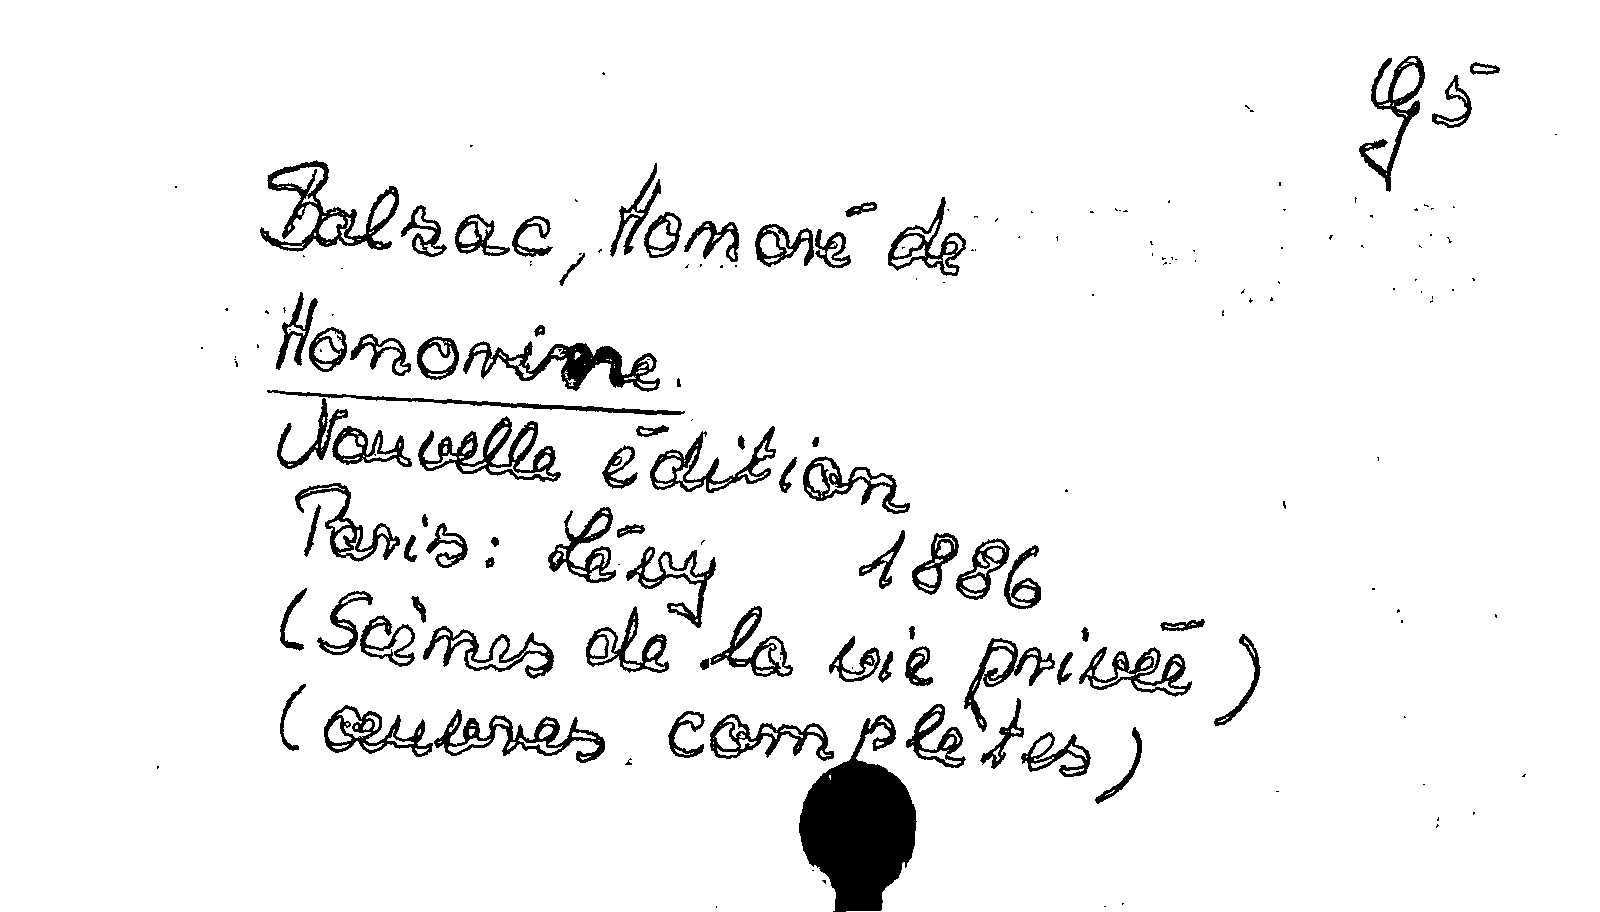 g5
Balzac, Honoré de
Honorine.
Nouvelle édition
Paris: Lévy 1886
(Scènes de la vie privée)
(œuvres complètes)